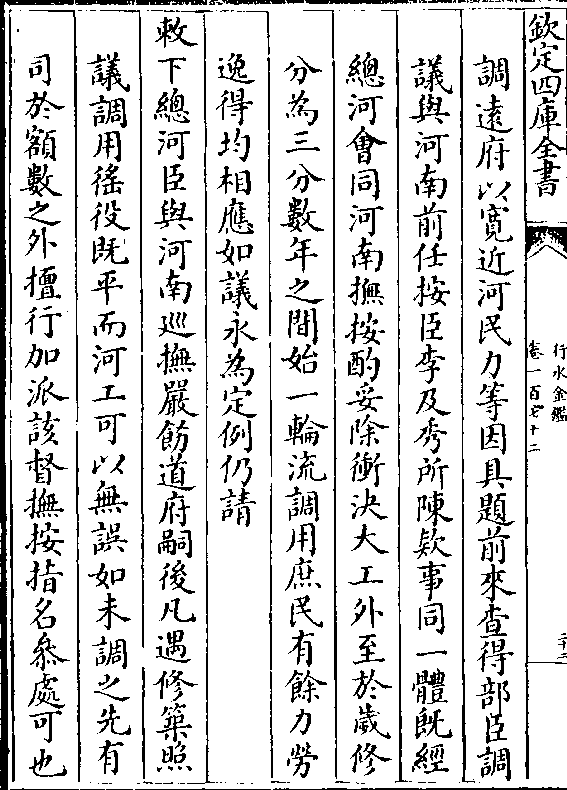 欽定四庫全書
行水金鑑
卷一百七十二
調遠府以寛近河民力等因具題前來查得部臣調
議與河南前任按臣李及秀所陳欵事同一體旣經
總河會同河南撫按酌妥除衝決大工外至於歲修
分為三分數年之間始一輪流調用庶民有餘力勞
逸得均相應如議永為定例仍請
敕下總河臣與河南廵撫嚴飭道府嗣後凡遇修築照
議調用徭役旣平而河工可以無誤如未調之先有
司於額數之外擅行加派該督撫按指名叅處可也